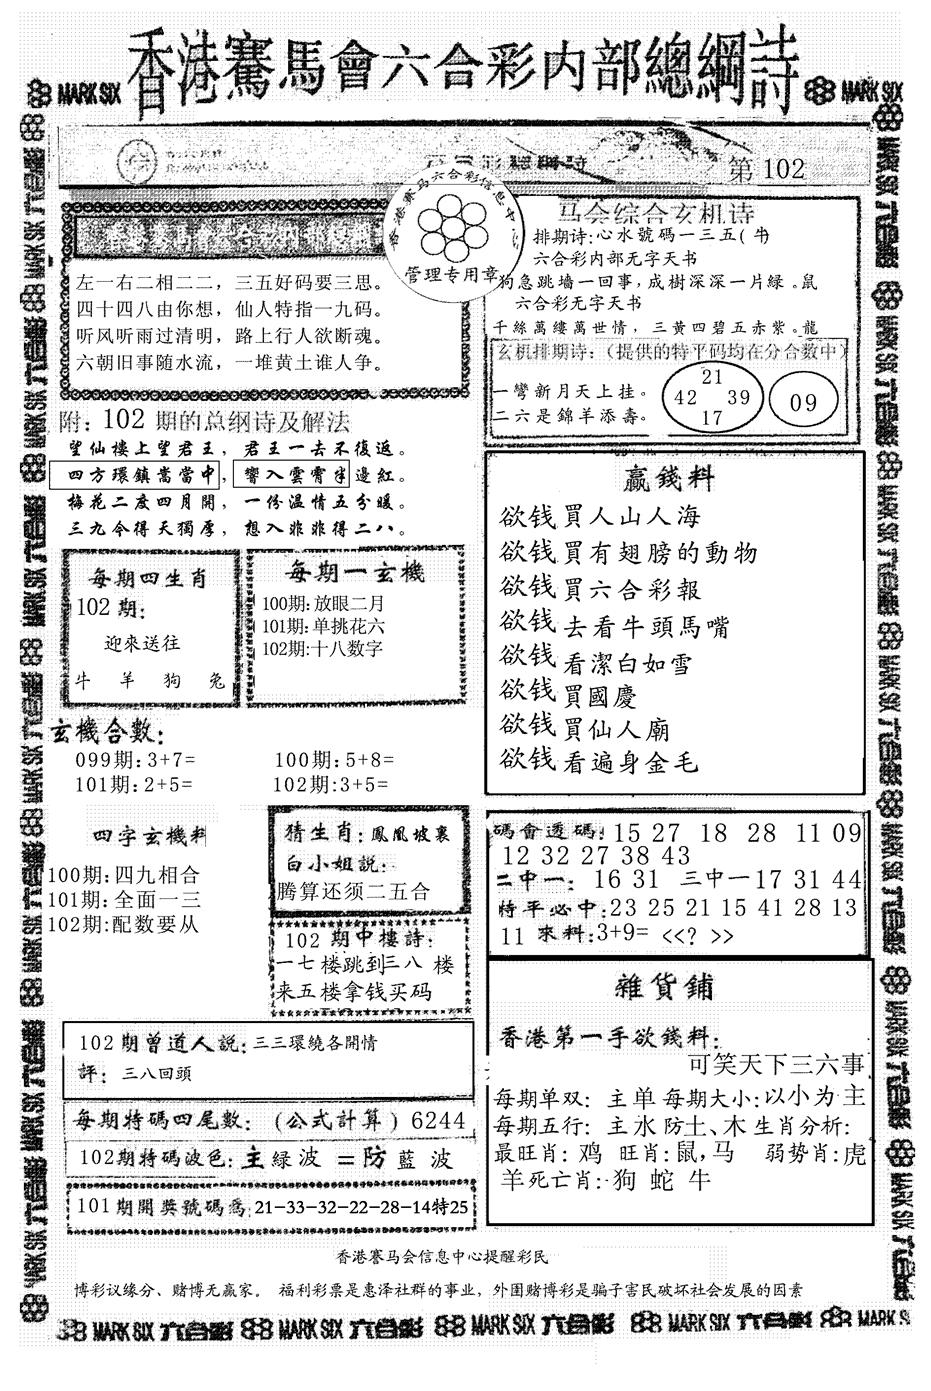 香港賽馬會六合彩内部總綱詩
MARK SIX
第102
香港赛马六合彩信息中心
管理专用章
左一右二相二二，三五好码要三思。
四十四八由你想，仙人特指一九码。
听风听雨过清明，路上行人欲断魂。
六朝旧事随水流，一堆黄土谁人争。
马会综合玄机诗
排期诗:心水號碼一三五(牛
六合彩内部无字天书
狗急跳墙一回事,成樹深深一片緑。鼠
六合彩无字天书
千絲萬縷萬世情，三黄四碧五赤紫。龍
玄机排期诗：(提供的特平码均在分合数中)
一彎新月天上挂。
二六是錦羊添壽。
21
42 39
17
09
附：102 期的总纲诗及解法
望仙樓上望君王，君王一去不復返。
四方環鎮嵩當中，響入雲霄半邊紅。
梅花二度四月開，一份温情五分暖。
三九今得天獨厚，想入非非得二八。
每期四生肖
102期：
迎來送往
牛 羊 狗 兔
每期一玄機
100期:放眼二月
101期:单挑花六
102期:十八数字
赢錢料
欲钱買人山人海
欲钱買有翅膀的動物
欲钱買六合彩報
欲钱去看牛頭馬嘴
欲钱看潔白如雪
欲钱買國慶
欲钱買仙人廟
欲钱看遍身金毛
玄機合數：
099期:3+7= 100期:5+8=
101期:2+5= 102期:3+5=
四字玄機料
100期:四九相合
101期:全面一三
102期:配数要从
猜生肖:鳳凰坡裏
白小姐説:
腾算还须二五合
102 期中樓詩:
一七楼跳到三八 楼
来五楼拿钱买码
碼會透碼:15 27 18 28 11 09
12 32 27 38 43
二中一: 16 31 三中一17 31 44
特平必中:23 25 21 15 41 28 13
11 來料:3+9= <<? >>
雜貨鋪
香港第一手欲錢料:
可笑天下三六事
每期单双: 主单 每期大小:以小为主
每期五行: 主水防土、木 生肖分析:
最旺肖: 鸡 旺肖:鼠,马 弱势肖:虎
羊死亡肖:狗 蛇 牛
102期曾道人説:三三環繞各開情
評: 三八回頭
每期特碼四尾數:(公式計算)6244
102期特碼波色:主緑波＝防藍波
101期開獎號碼爲:21-33-32-22-28-14特25
香港赛马会信息中心提醒彩民
博彩议缘分、赌博无赢家。 福利彩票是惠泽社群的事业，外围赌博彩是骗子害民破坏社会发展的因素
MARK SIX 六合彩 MARK SIX 六合彩 MARK SIX 六合彩 MARK SIX 六合彩 MARK SIX